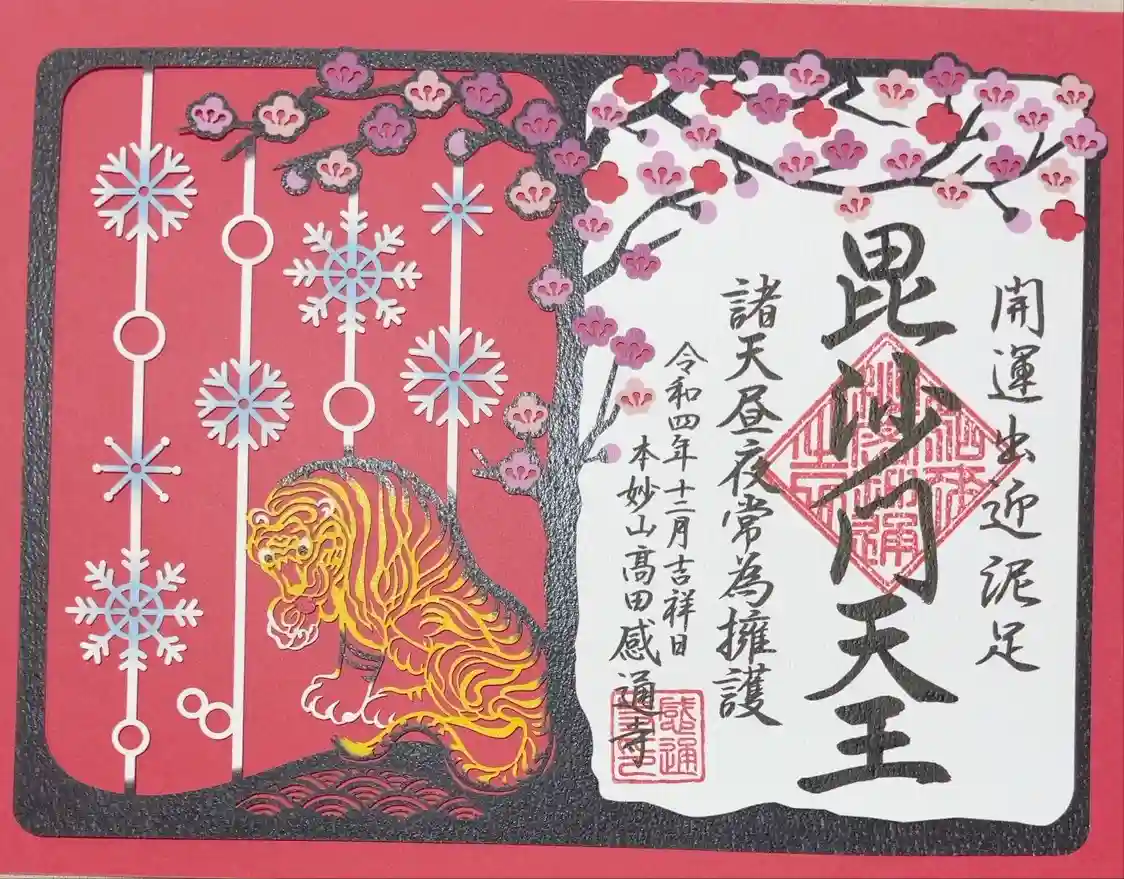 開運出迎泥足
毘沙門天王
諸天昼夜常為擁護
令和四年十二月吉祥日
本妙山高田感通寺
感通